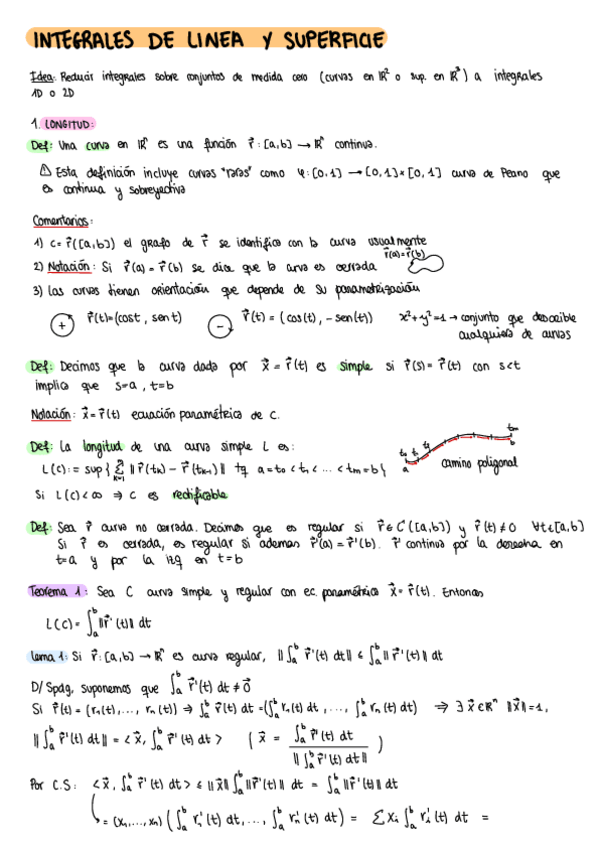 INTEGRALES DE LINEA Y SUPERFICIE
Idea: Reducir integrales sobre conjuntos de medida cero (curvas en ℝ² o sup. en ℝ³) a integrales
1D o 2D
1. LONGITUD:
Def: Una curva en ℝⁿ es una función r⃗: [a,b] → ℝⁿ continua.
⚠ Esta definición incluye curvas "raras" como φ: [0,1] → [0,1]×[0,1] curva de Peano que
es continua y sobreyectiva
Comentarios:
1) C = r⃗([a,b]) el grafo de r⃗ se identifica con la curva usualmente
2) Notación: Si r⃗(a) = r⃗(b) se dice que la curva es cerrada r⃗(a)=r⃗(b)
3) Las curvas tienen orientación que depende de su parametrización
+ r⃗(t)=(cost, sent) − r⃗(t) = (cos(t), -sen(t)) x²+y²=1 → conjunto que describe
cualquiera de curvas
Def: Decimos que la curva dada por x⃗ = r⃗(t) es simple si r⃗(s) = r⃗(t) con s<t
implica que s=a, t=b
Notación: x⃗ = r⃗(t) ecuación paramétrica de C.
Def: La longitud de una curva simple L es:
L(C) := sup{ Σₖ₌₁ᵐ ‖r⃗(tₖ) - r⃗(tₖ₋₁)‖ tq a=t₀ < t₁ < ... < tₘ = b} a t₀ t₁ tₘ b camino poligonal
Si L(C) < ∞ ⇒ C es rectificable
Def: Sea r⃗ curva no cerrada. Decimos que es regular si r⃗ ∈ C¹([a,b]) y r⃗'(t) ≠ 0 ∀t∈[a,b]
Si r⃗ es cerrada, es regular si además r⃗'(a) = r⃗'(b). r⃗' continua por la derecha en
t=a y por la izq en t=b
Teorema 1: Sea C curva simple y regular con ec. paramétrica x⃗ = r⃗(t). Entonces
L(C) = ∫ₐᵇ ‖r⃗'(t)‖ dt
Lema 1: Si r⃗: [a,b] → ℝⁿ es curva regular, ‖∫ₐᵇ r⃗'(t) dt‖ ≤ ∫ₐᵇ ‖r⃗'(t)‖ dt
D/ Spdg, suponemos que ∫ₐᵇ r⃗'(t) dt ≠ 0⃗
Si r⃗(t) = (r₁(t), ..., rₙ(t)) ⇒ ∫ₐᵇ r⃗(t) dt = (∫ₐᵇ r₁(t) dt, ..., ∫ₐᵇ rₙ(t) dt) ⇒ ∃ x⃗ ∈ ℝⁿ ‖x⃗‖=1,
‖∫ₐᵇ r⃗'(t) dt‖ = <x⃗, ∫ₐᵇ r⃗'(t) dt> ( x⃗ = ∫ₐᵇ r⃗'(t) dt / ‖∫ₐᵇ r⃗'(t) dt‖ )
Por C.S: <x⃗, ∫ₐᵇ r⃗'(t) dt> ≤ ‖x⃗‖ ∫ₐᵇ ‖r⃗'(t)‖ dt = ∫ₐᵇ ‖r⃗'(t)‖ dt
= (x₁, ..., xₙ) (∫ₐᵇ r₁'(t) dt, ..., ∫ₐᵇ rₙ'(t) dt) = Σ xᵢ ∫ₐᵇ rᵢ'(t) dt =